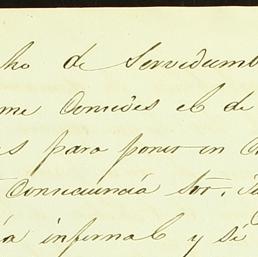 ho de Servidumb
me Concedes el de
s para poner en
Consecuencia Sor.
a infernal y si